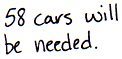 58 cars will
be needed.